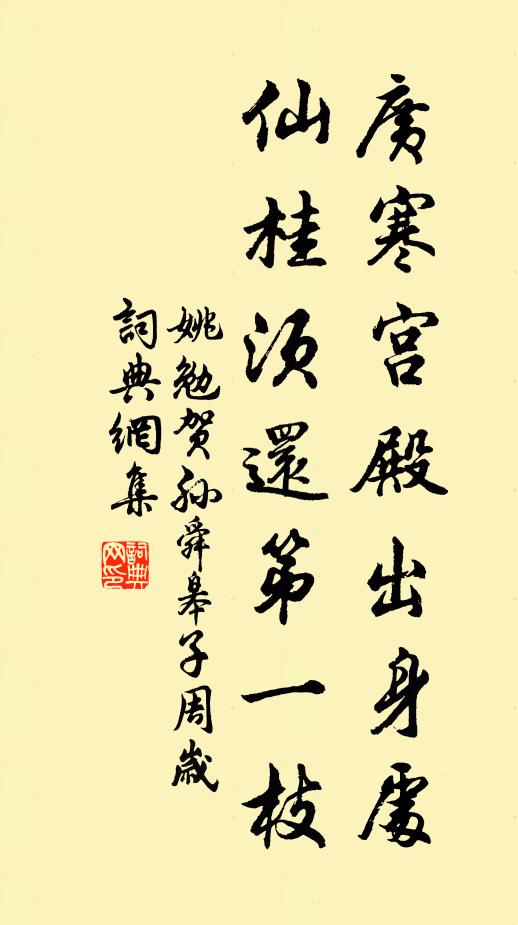 廣寒宮殿出身處
仙桂須還第一枝
姚勉賀孫舜皋子周歲
詞典網集
詞典
網印